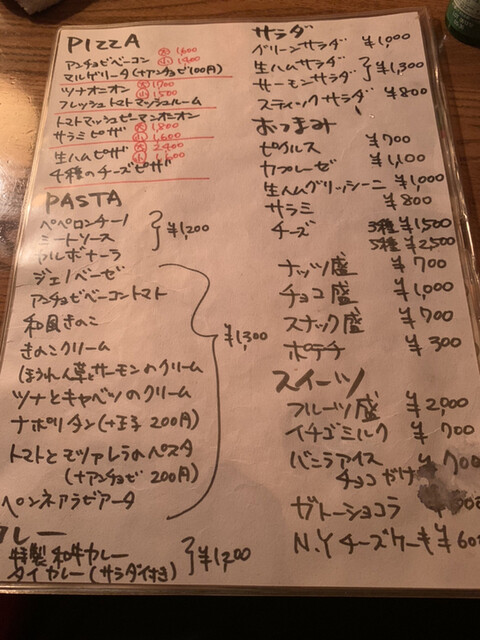 PIZZA
アンチョビベーコン 大 1,600
マルゲリータ(+アンチョビ100円) 小
ツナオニオン 大 1700
フレッシュトマトマッシュルーム 小 1500
トマトマッシュピーマンオニオン 大 1,800
サラミピザ 小 1,600
生ハムピザ 大
4種のチーズピザ 小
PASTA
ペペロンチーノ
ミートソース ¥1,200
カルボナーラ
ジェノベーゼ
アンチョビベーコントマト
和風きのこ
きのこクリーム ¥1,300
ほうれん草とサーモンのクリーム
ツナとキャベツのクリーム
ナポリタン(+玉子 200円)
トマトとモツァレラのペスタ
(+アンチョビ 200円)
ペンネアラビアータ
カレー
特製 和牛カレー ¥1,200
タイカレー(サラダ付き)
サラダ
グリーンサラダ ¥1,000
生ハムサラダ ¥1,300
サーモンサラダ
スティックサラダ ¥800
おつまみ
ピクルス ¥700
カプレーゼ ¥1,100
生ハムグリッシーニ ¥1,000
サラミ ¥800
チーズ 3種 ¥1,500
5種 ¥2,500
ナッツ盛 ¥700
チョコ盛 ¥1,000
スナック盛 ¥700
ポテチ ¥300
スイーツ
フルーツ盛 ¥2,000
イチゴミルク ¥700
バニラアイス ¥700
チョコがけ
ガトーショコラ
N.Yチーズケーキ ¥600